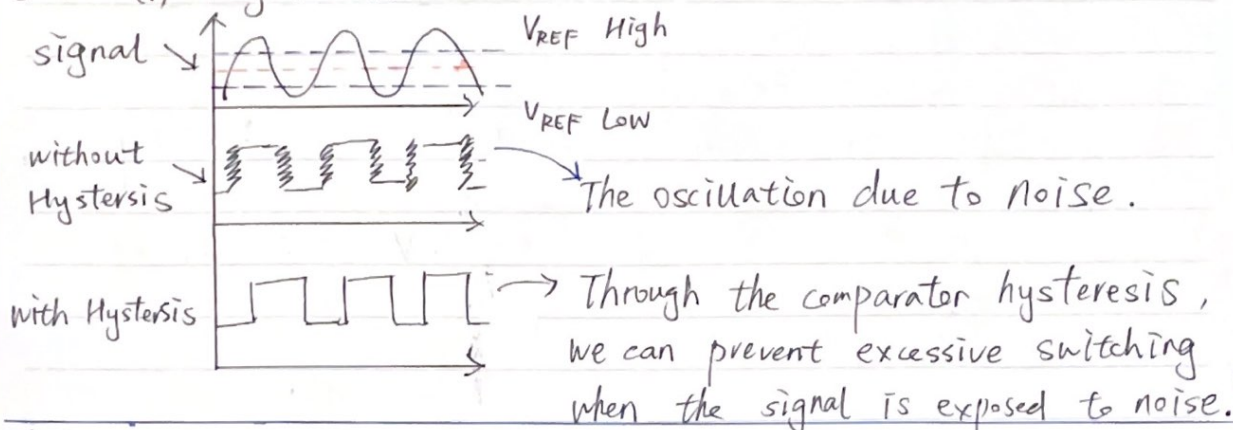 signal
VREF High
VREF Low
without
Hystersis
The oscillation due to noise.
with Hystersis
Through the comparator hysteresis,
we can prevent excessive switching
when the signal is exposed to noise.